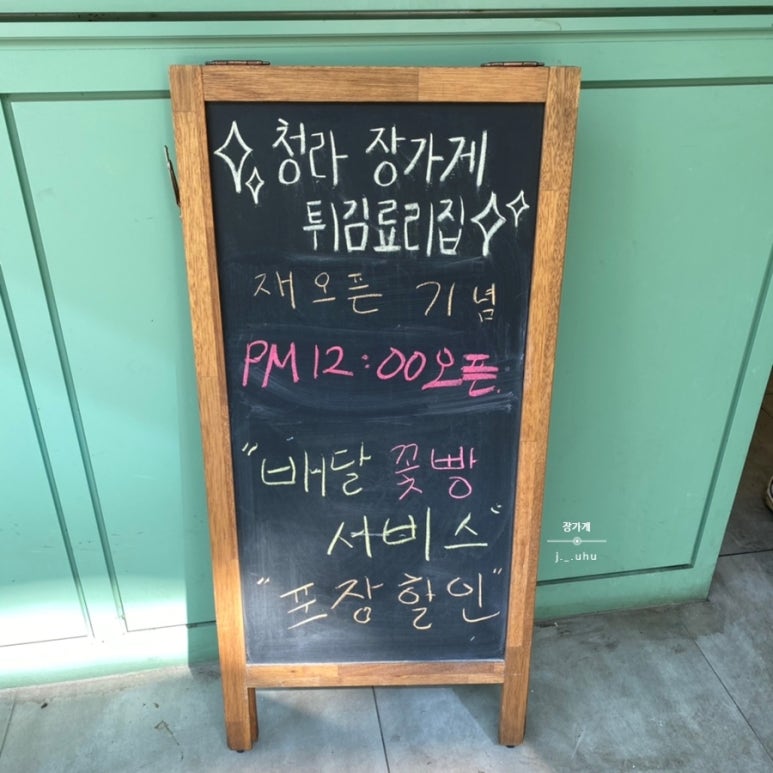 청라 장가게
튀김료리집
재오픈 기념
PM 12:00 오픈
"배달 꽃빵
서비스"
"포장할인"
장가게
j._.uhu